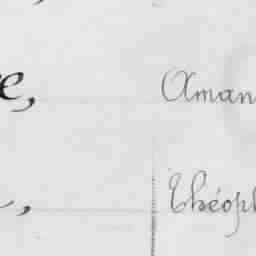 e, Aman
, Théoph